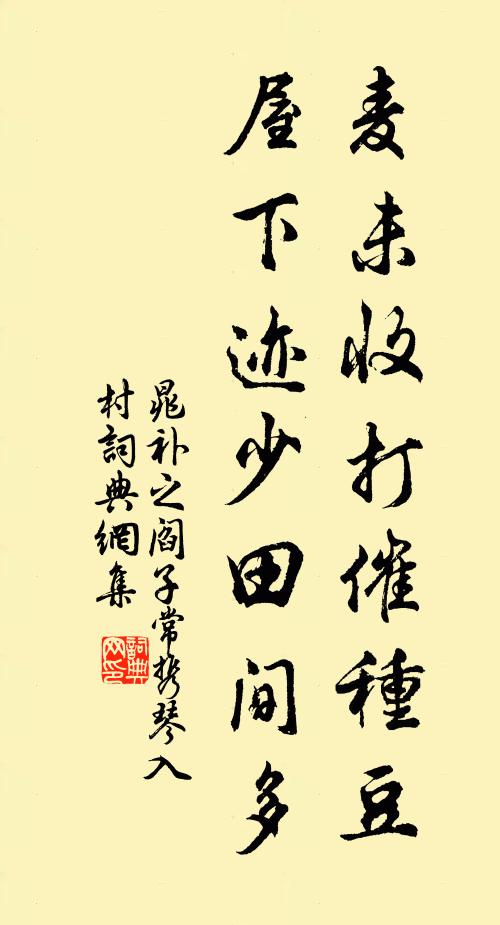 麦未收打催種豆
屋下迹少田间多
晁补之阎子常携琴入
村詞典網集
詞典
网印